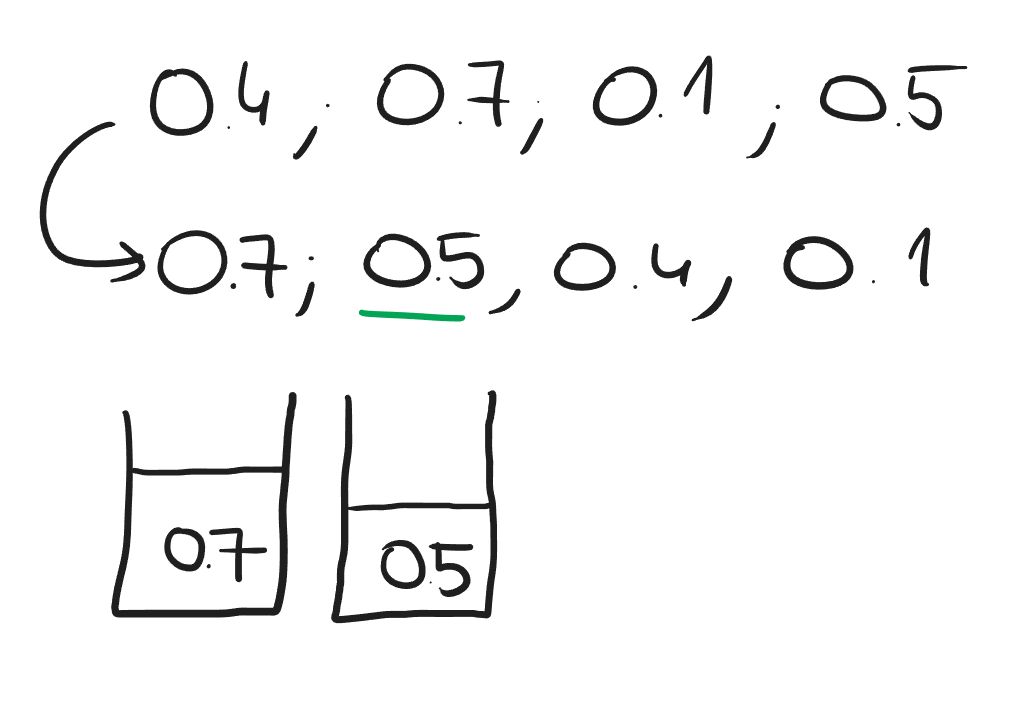 0.4; 0.7; 0.1; 0.5
0.7; 0.5, 0.4, 0.1
0.7 0.5